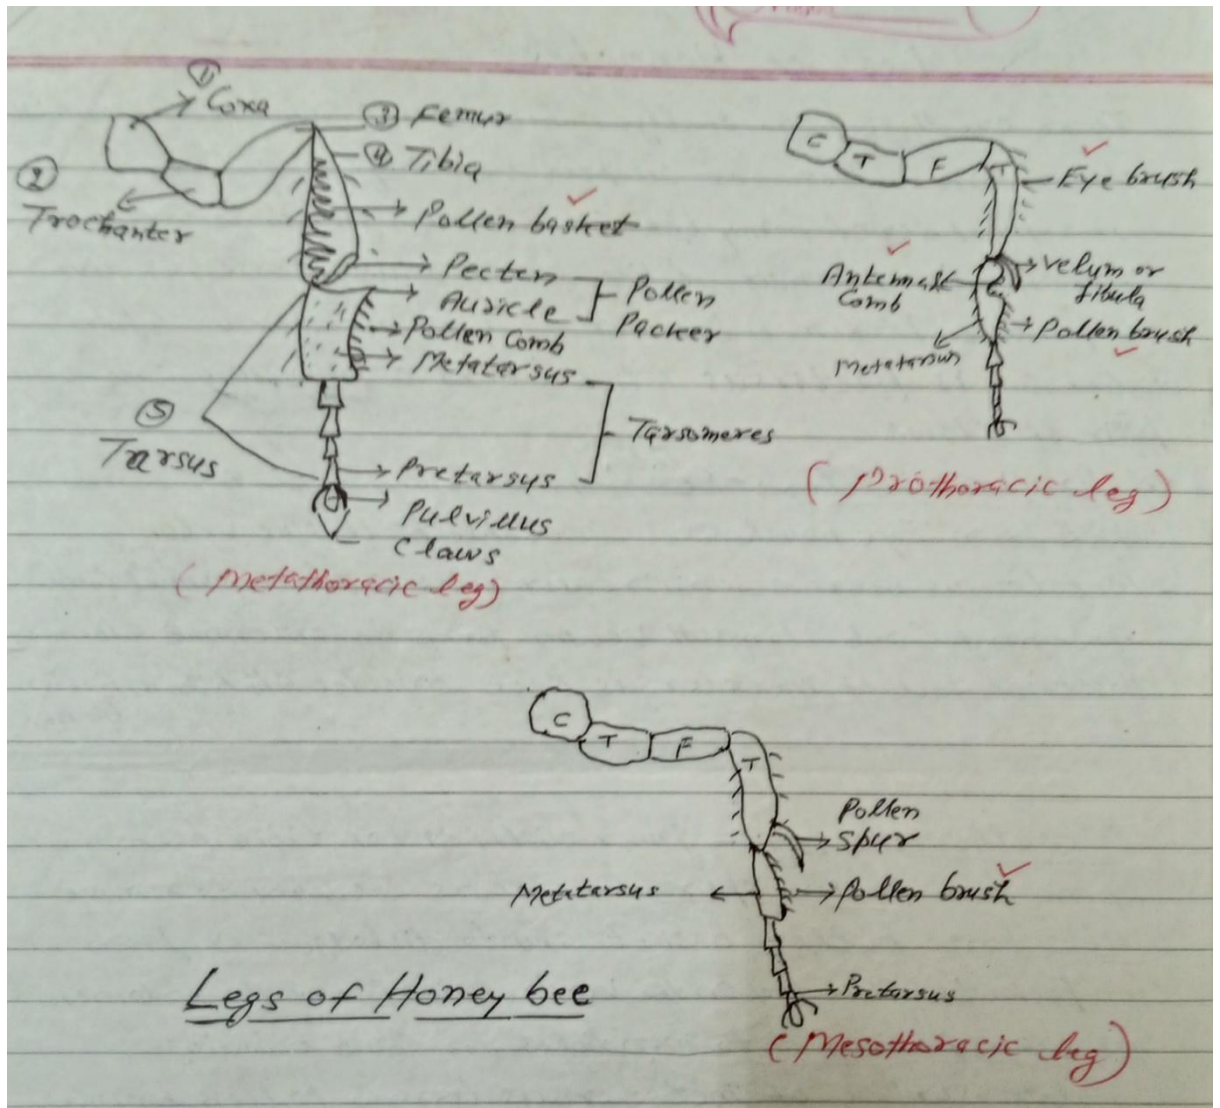 ① Coxa
③ Femur
④ Tibia
②
Trochanter
Pollen basket
Pecten
Auricle
Pollen
Packer
Pollen Comb
Metatarsus
⑤
Tarsus
Tarsomeres
Pretarsus
Pulvillus
Claws
(Metathoracic leg)
C
T
F
T
Eye brush
Antennal
Comb
Velum or
fibula
Pollen brush
Metatarsus
(Prothoracic leg)
C
T
F
T
Pollen
Spur
Metatarsus
Pollen brush
Pretarsus
(Mesothoracic leg)
Legs of Honey bee